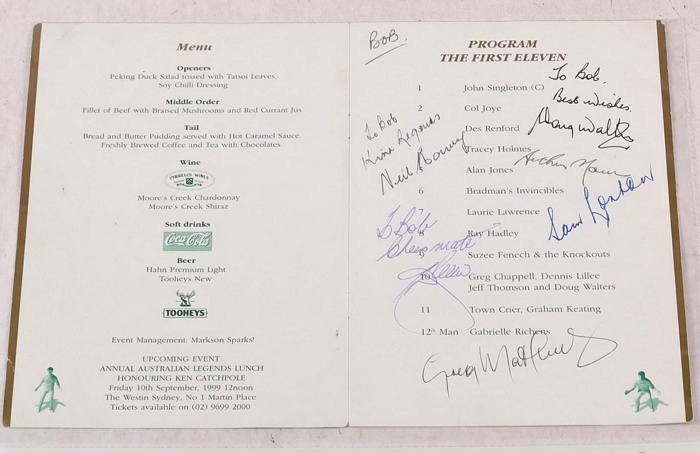 Menu
Openers
Peking Duck Salad tossed with Tatsoi Leaves,
Soy Chilli Dressing
Middle Order
Fillet of Beef with Braised Mushrooms and Red Currant Jus
Tail
Bread and Butter Pudding served with Hot Caramel Sauce
Freshly Brewed Coffee and Tea with Chocolates
Wine
TYRRELL'S WINES
Moore's Creek Chardonnay
Moore's Creek Shiraz
Soft drinks
Coca-Cola
Beer
Hahn Premium Light
Tooheys New
TOOHEYS
Event Management: Markson Sparks!
UPCOMING EVENT:
ANNUAL AUSTRALIAN LEGENDS LUNCH
HONOURING KEN CATCHPOLE
Friday 10th September, 1999 12noon
The Westin Sydney, No 1 Martin Place
Tickets available on (02) 9699 2000
BOB.
PROGRAM
THE FIRST ELEVEN
1 John Singleton (C)
2 Col Joye
Des Renford
Tracey Holmes
5 Alan Jones
6 Bradman's Invincibles
7 Laurie Lawrence
8 Ray Hadley
9 Suzee Fenech & the Knockouts
10 Greg Chappell, Dennis Lillee
Jeff Thomson and Doug Walters
11 Town Crier, Graham Keating
12th Man Gabrielle Richens
To Bob.
Best Wishes
Doug Walters
To Bob
Kind Regards
Neil Harvey
To Bob
Cheers mate
Lillee
Sam Loxton
Greg Matthews